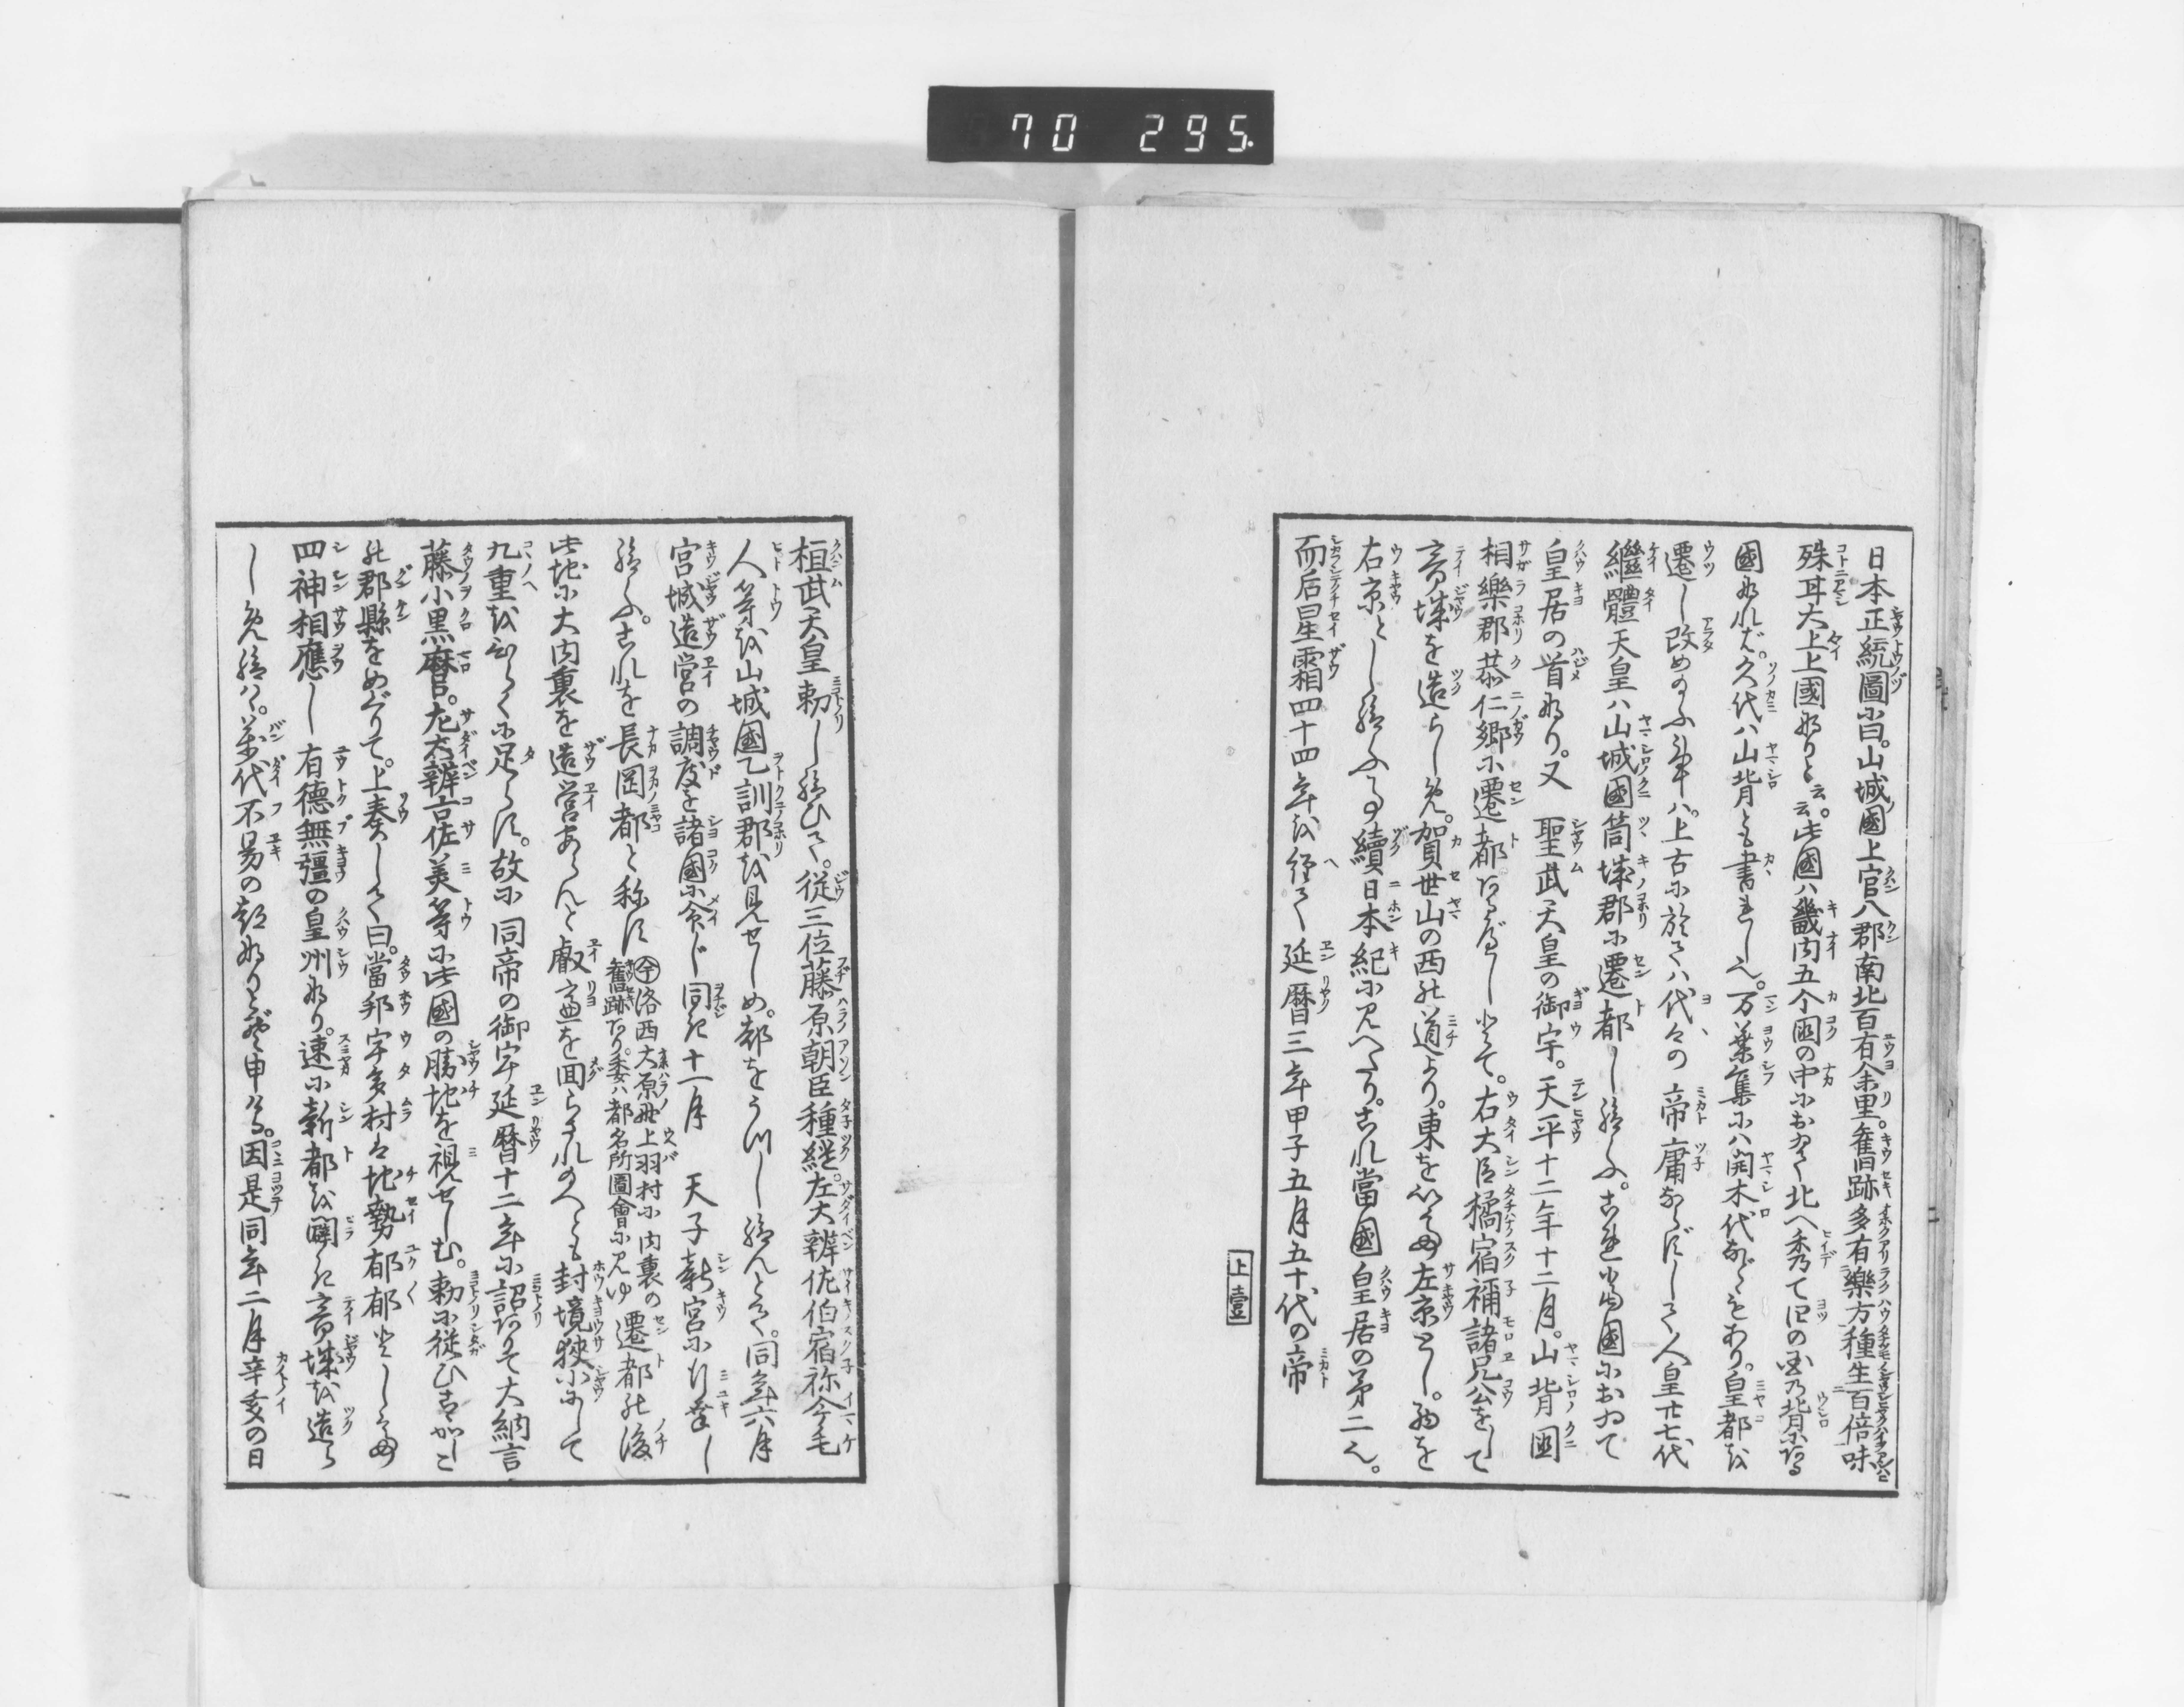 70 295.
日本正統圖曰。山城國上官八郡南北百有余里。舊跡多有樂方種生百倍味
殊耳大上上國なりと云云。此國ハ畿内五个國の中におゐて北へ秀て四の国乃背にある
國なれば。久代ハ山背とも書きし也。万葉集にハ開木代などゝもあり。皇都を
遷し改めのふ事ハ。上古に於てハ代々の 帝庸ならずして人皇廿七代
繼體天皇ハ山城國筒城郡に遷都し給ふ。これ当國におゐて
皇居の首なり。又 聖武天皇の御宇。天平十二年十二月。山背國
相樂郡恭仁郷に遷都あるべしとて。右大臣橘宿禰諸兄公をして
帝城を造らしめ。賀世山の西の道より。東を以て左京とし。西を
右京とし給ふ事續日本紀に見へたり。これ當國 皇居の第二也。
而后星霜四十四年を経て延暦三年甲子五月五十代の帝
上壹
桓武天皇勅し給ひて。従三位藤原朝臣種継。左大辨佐伯宿祢今毛
人等を山城國乙訓郡を見せしめ。都をうつし給んとて。同年六月
宮城造営の調度を諸國に令じ同き十一月 天子新宮に行幸し
給ふ。これを長岡都と称す ㋿今洛西大原野上羽村に内裏の舊跡あり。委ハ都名所圖會に見ゆ 遷都の後
此地に大内裏を造営あらんと叡慮を回らされのへども封境狭小にして
九重をひらくに足らす。故に 同帝の御宇延暦十二年に詔ありて大納言
藤小黒麿。左大辨古佐美等に此國の勝地を視せしむ。勅に従ひ
郡縣をめぐりて。上奏して曰。當邦宇多村は地勢郁郁として
四神相應し 有德無彊の皇州なり。速に新都を闢き帝城を造ら
しめ給はゞ。萬代不易の都なりとぞ申ける。因是同年二月辛亥の日